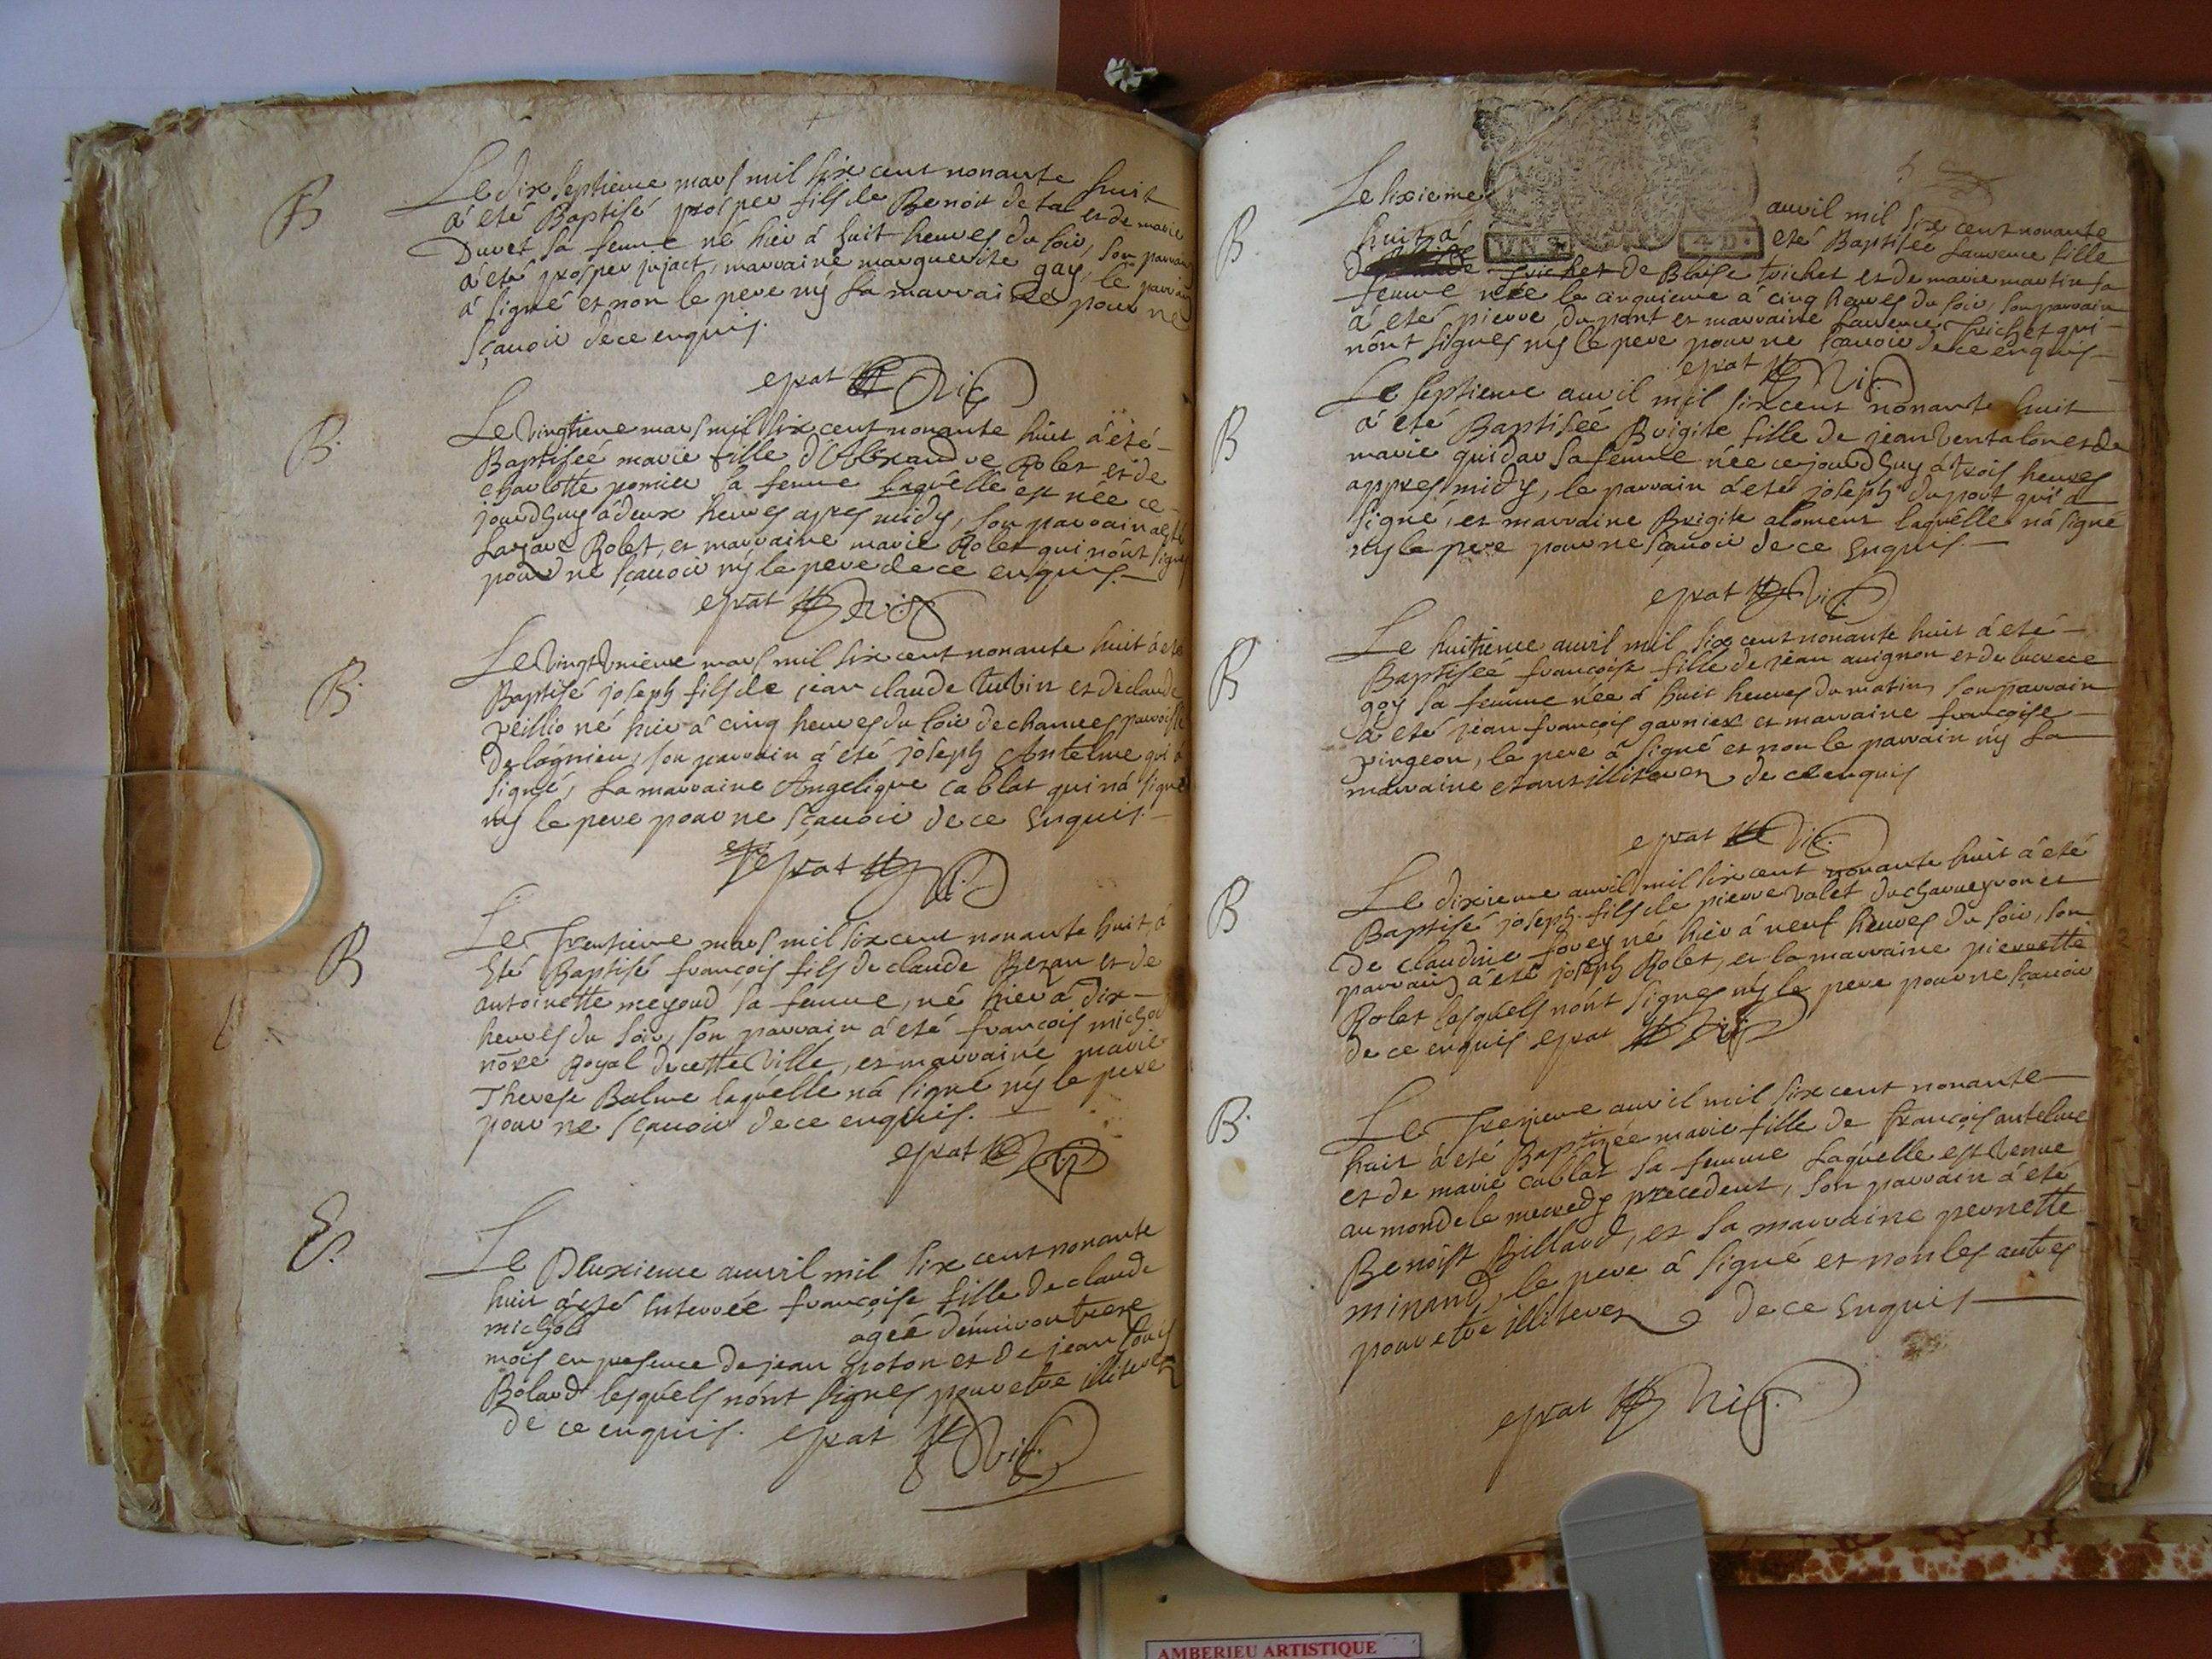 B
Le dix septieme mars mil six cent nonante huit
à eté Baptisé prosper fils de Benoit detal et de marie
Duret sa femme né hier à huit heures du soir, son parrain
à eté prosper jujact, marraine marguerite gay, le parrain
à signé et non le pere nÿ la marraine pour ne
sçavoir de ce enquis.
eprat Vic
B.
Le vingtieme mars mil six cent nonante huit à eté
Baptiseé marie fille d'Alexandre Rolet et de
charlotte pomier sa femme laquelle est née ce
jourdhuy à deux heures apres midy, son parrain a eté
Lazare Rolet, et marraine marie Rolet qui n'ont signés
pour ne sçavoir nÿ le pere de ce enquis.
eprat Vic
B.
Le vingt unieme mars mil six cent nonante huit à eté
Baptisé joseph fils de jean claude tubin et de claude
peillio né hier à cinq heures du soir de chanves parroisse
De lagnieu, son parrain à eté joseph Antelme qui à
signé, La marraine Angelique cablat qui nà signé
nÿ le pere pour ne sçavoir de ce Enquis.
eprat Vic
B
Le Trentieme mars mil six cent nonante huit, à
Eté Baptisé françois fils de claude Bezan et de
antoinette meyoud sa femme, né hier à dix
heures du soir, son parrain à eté françois michod
nore Royal de cette Ville, et marraine marie
Therese Balme laquelle nà signé nÿ le pere
pour ne sçavoir de ce enquis.
eprat Vic
E.
Le Deuxieme auvril mil six cent nonante
huit à eté Enterrée françoise fille de claude
michod ageé d'environ treze
mois en presence de jean goton et de jean louis
Bolard lesquels n'ont signes pour etre illiteres
de ce enquis. eprat Vic
B
Le sixieme auvril mil six cent nonante
huit à eté Baptiseé Laurence fille
VN S 4 D.
Trichet de Blaise trichet et de marie martin sa
femme née le cinquieme à cinq heures du soir, son parrain
à eté pierre dupont et marraine Laurence Trichet qui
n'ont signes nÿ le pere pour ne sçavoir de ce enquis
eprat Vic
B
Le septieme auvril mil six cent nonante huit
à eté Baptiseé Brigite fille de jean Ventalon et de
marie quidar sa femme née ce jourdhuy à trois heures
appres midy, le parrain à eté joseph dupont qui à
signé, et marraine Brigite aloment laquelle nà signé
nÿ le pere pour ne sçavoir de ce Enquis.
eprat Vic
B
Le huitieme auvril mil six cent nonante huit à eté
Baptiseé françoise fille de jean auignon et de lucrece
goy sa femme née à huit heures du matin, son parrain
à eté jean françois garnier et marraine françoise
pingeon, le pere à signé et non le parrain nÿ la
marraine etant illiteres de ce enquis
eprat Vic
B
Le dixieme auvril mil six cent nonante huit à eté
Baptisé joseph fils de pierre valet du charveyron et
De claudine forey né hier à neuf heures du soir, son
parrain à eté joseph Rolet, et la marraine pierrette
Rolet lesquels n'ont signes nÿ le pere pour ne sçavoir
de ce enquis eprat Vic
B.
Le Trezieme auvril mil six cent nonante
huit à eté Baptizée marie fille de françois antelme
et de marie cablat sa femme Laquelle est Venue
au monde le mecredÿ precedent, son parrain à eté
Benoist Billard, et sa marraine pernette
minand, le pere à signé et non les autres
pour etre illiteres de ce Enquis
eprat Vic.
AMBERIEU ARTISTIQUE